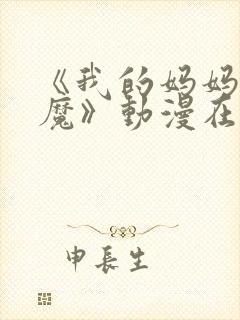 《我的妈妈
魔》動漫在
申長生